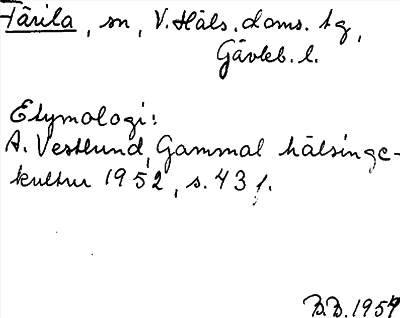 Färila, sn, V. Häls. doms. tg,
Gävleb. l.
Etymologi:
A. Vestlund, Gammal hälsinge-
kultur 1952, s. 43 f.
B.B. 1959